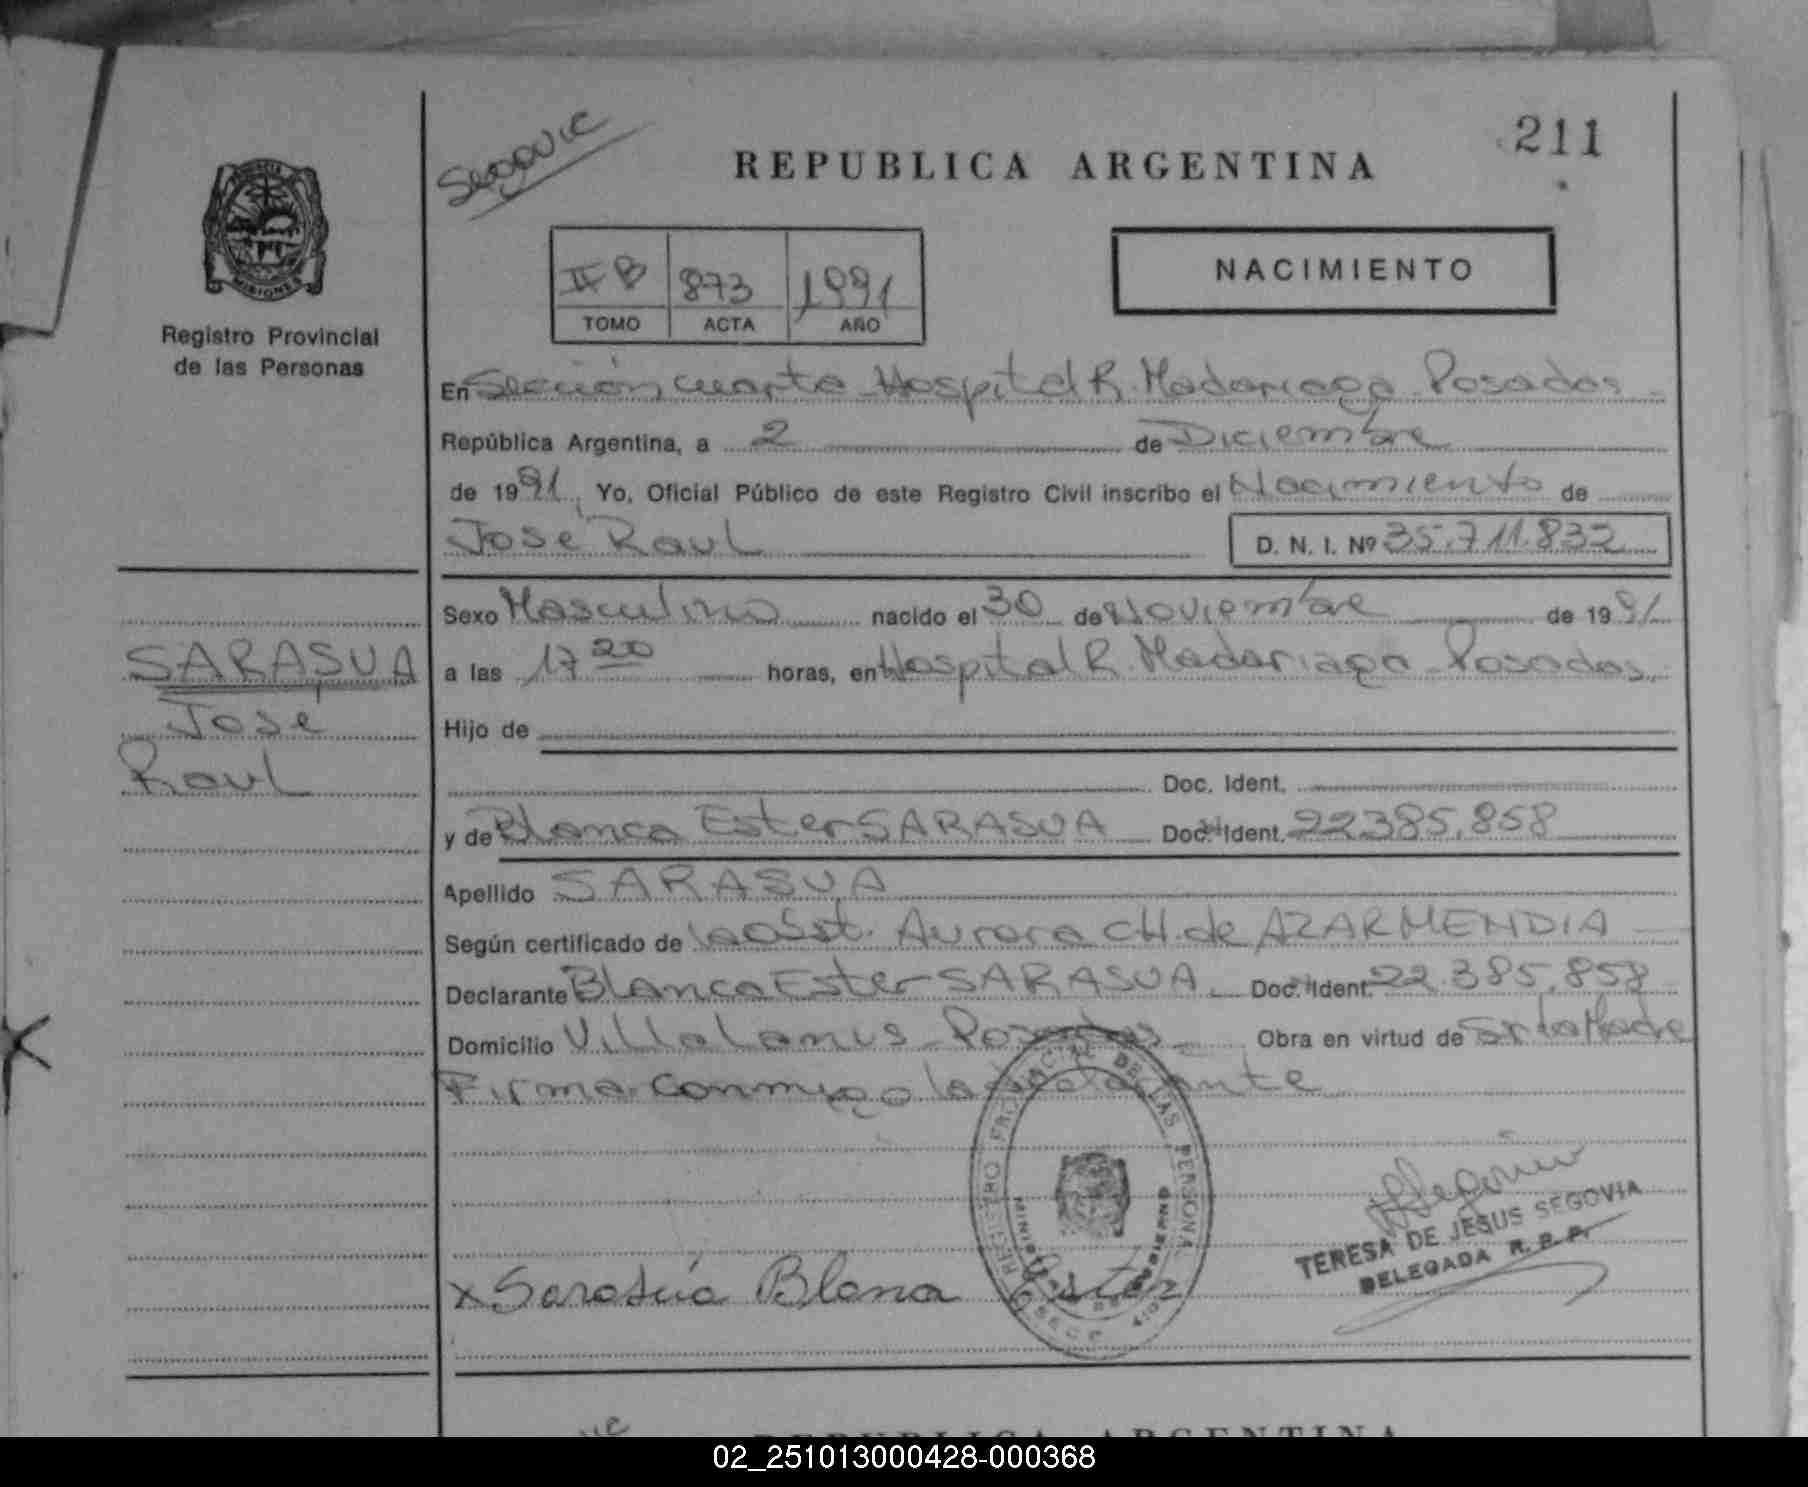 211
Segovic
REPUBLICA ARGENTINA
PROVINCIA
MISIONES
Registro Provincial
de las Personas
NACIMIENTO
II B 873 1991
TOMO ACTA AÑO
En Sección cuarta Hospital R. Madariaga - Posadas -
República Argentina, a 2 de Diciembre
de 1991, Yo, Oficial Público de este Registro Civil inscribo el Nacimiento de
José Raul D. N. I. Nº 35.711.832
Sexo Masculino nacido el 30 de Noviembre de 1991
a las 17 20 horas, en Hospital R. Madariaga - Posadas.
Hijo de
Doc. Ident.
y de Blanca Ester SARASUA Doc. Ident. 22385.858
Apellido SARASUA
Según certificado de la obst. Aurora CH. de AZARMENDIA
Declarante Blanca Ester SARASUA. Doc. Ident. 22.385.858
Domicilio Villa Lanus - Posadas - Obra en virtud de ser la Madre
Firma conmigo la declarante
SARASUA
José
Raul
REGISTRO PROVINCIAL DE LAS PERSONAS
x Sarasúa Blana Ester
TERESA DE JESUS SEGOVIA
DELEGADA R. P. P.
REPUBLICA ARGENTINA
02_251013000428-000368